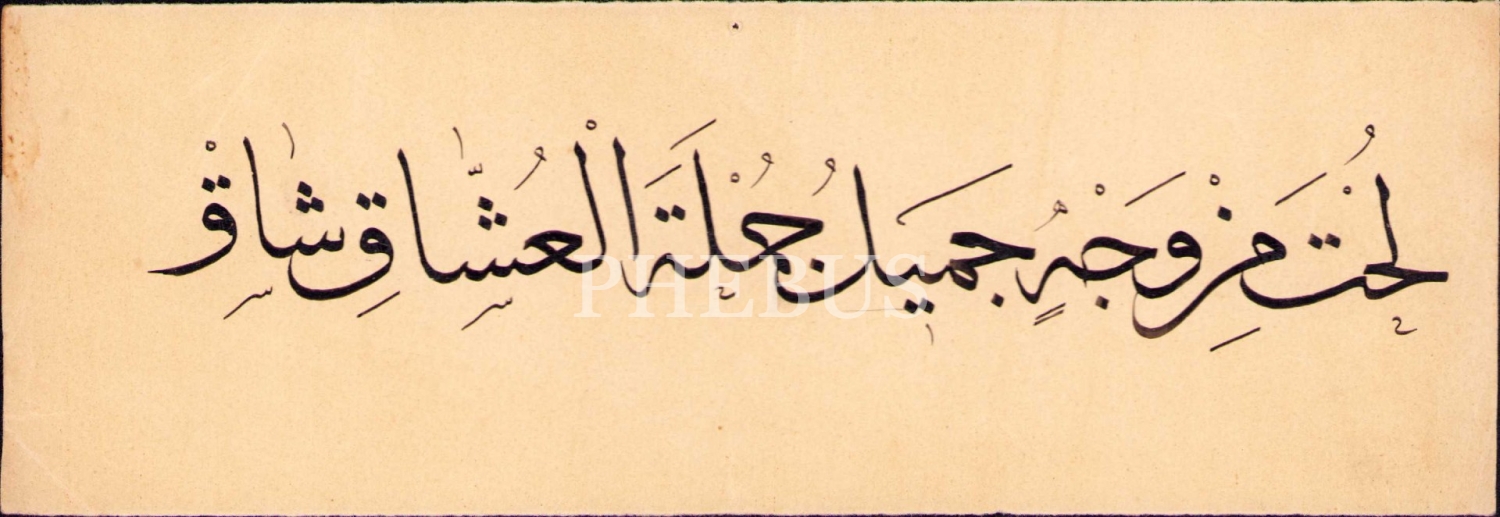 لُحْتَ مِنْ وَجْهٍ جَمِيل جُمْلَةَ الْعُشَّاقِ شَاقْ
PHEBUS